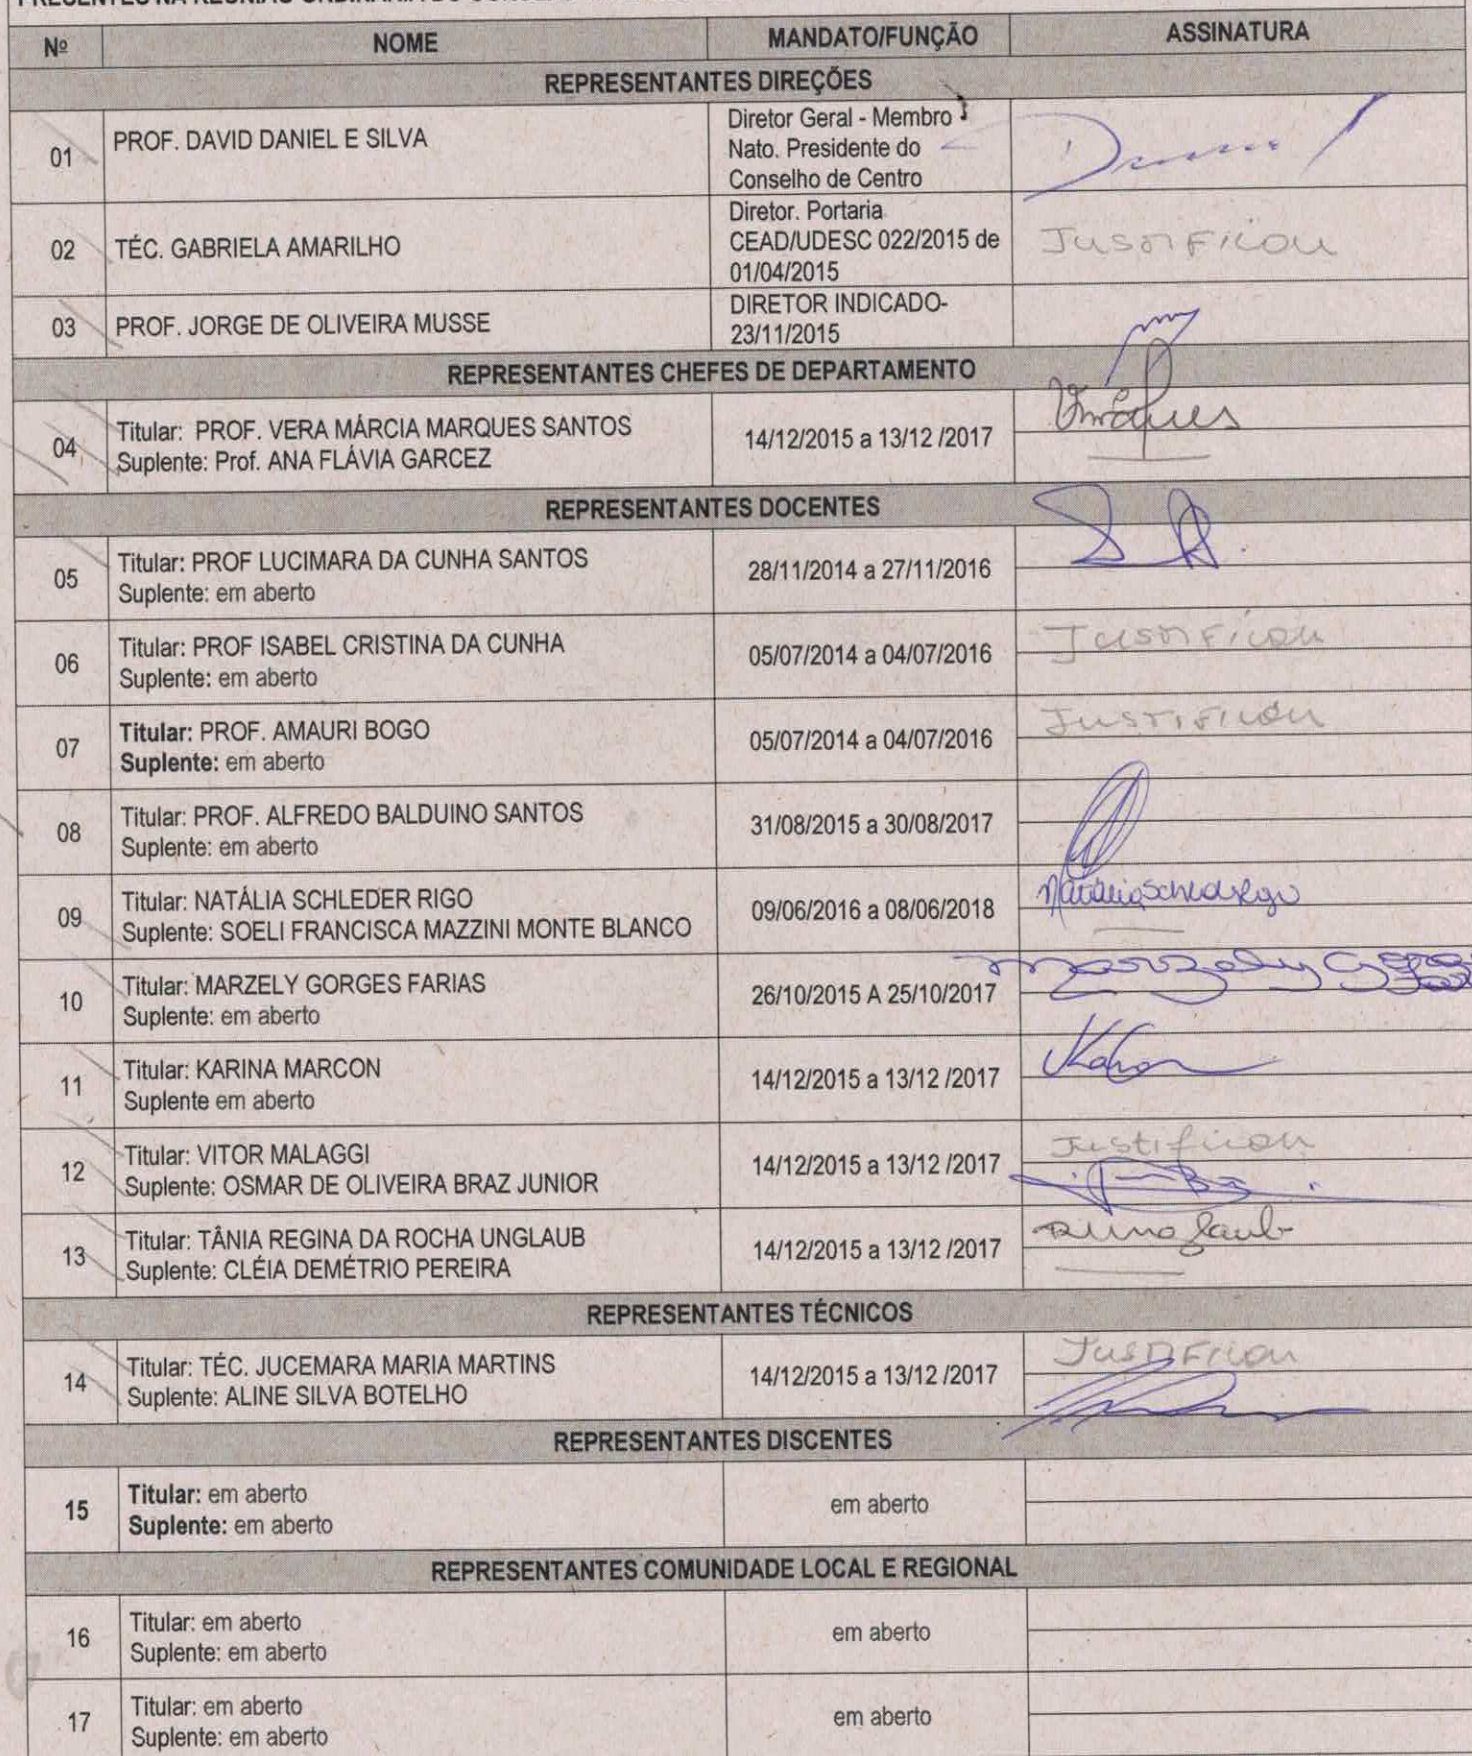 PRESENTES NA REUNIÃO ORDINÁRIA DO
Nº NOME MANDATO/FUNÇÃO ASSINATURA
REPRESENTANTES DIREÇÕES
01 PROF. DAVID DANIEL E SILVA
Diretor Geral - Membro
Nato. Presidente do
Conselho de Centro
02 TÉC. GABRIELA AMARILHO
Diretor. Portaria
CEAD/UDESC 022/2015 de
01/04/2015
Justificou
03 PROF. JORGE DE OLIVEIRA MUSSE
DIRETOR INDICADO-
23/11/2015
REPRESENTANTES CHEFES DE DEPARTAMENTO
04
Titular: PROF. VERA MÁRCIA MARQUES SANTOS
Suplente: Prof. ANA FLÁVIA GARCEZ
14/12/2015 a 13/12 /2017
REPRESENTANTES DOCENTES
05
Titular: PROF LUCIMARA DA CUNHA SANTOS
Suplente: em aberto
28/11/2014 a 27/11/2016
06
Titular: PROF ISABEL CRISTINA DA CUNHA
Suplente: em aberto
05/07/2014 a 04/07/2016
Justificou
07
Titular: PROF. AMAURI BOGO
Suplente: em aberto
05/07/2014 a 04/07/2016
Justificou
08
Titular: PROF. ALFREDO BALDUINO SANTOS
Suplente: em aberto
31/08/2015 a 30/08/2017
09
Titular: NATÁLIA SCHLEDER RIGO
Suplente: SOELI FRANCISCA MAZZINI MONTE BLANCO
09/06/2016 a 08/06/2018
10
Titular: MARZELY GORGES FARIAS
Suplente: em aberto
26/10/2015 A 25/10/2017
Marzely
11
Titular: KARINA MARCON
Suplente em aberto
14/12/2015 a 13/12 /2017
12
Titular: VITOR MALAGGI
Suplente: OSMAR DE OLIVEIRA BRAZ JUNIOR
14/12/2015 a 13/12 /2017
Justificou
13
Titular: TÂNIA REGINA DA ROCHA UNGLAUB
Suplente: CLÉIA DEMÉTRIO PEREIRA
14/12/2015 a 13/12 /2017
REPRESENTANTES TÉCNICOS
14
Titular: TÉC. JUCEMARA MARIA MARTINS
Suplente: ALINE SILVA BOTELHO
14/12/2015 a 13/12 /2017
Justificou
REPRESENTANTES DISCENTES
15
Titular: em aberto
Suplente: em aberto
em aberto
REPRESENTANTES COMUNIDADE LOCAL E REGIONAL
16
Titular: em aberto
Suplente: em aberto
em aberto
17
Titular: em aberto
Suplente: em aberto
em aberto